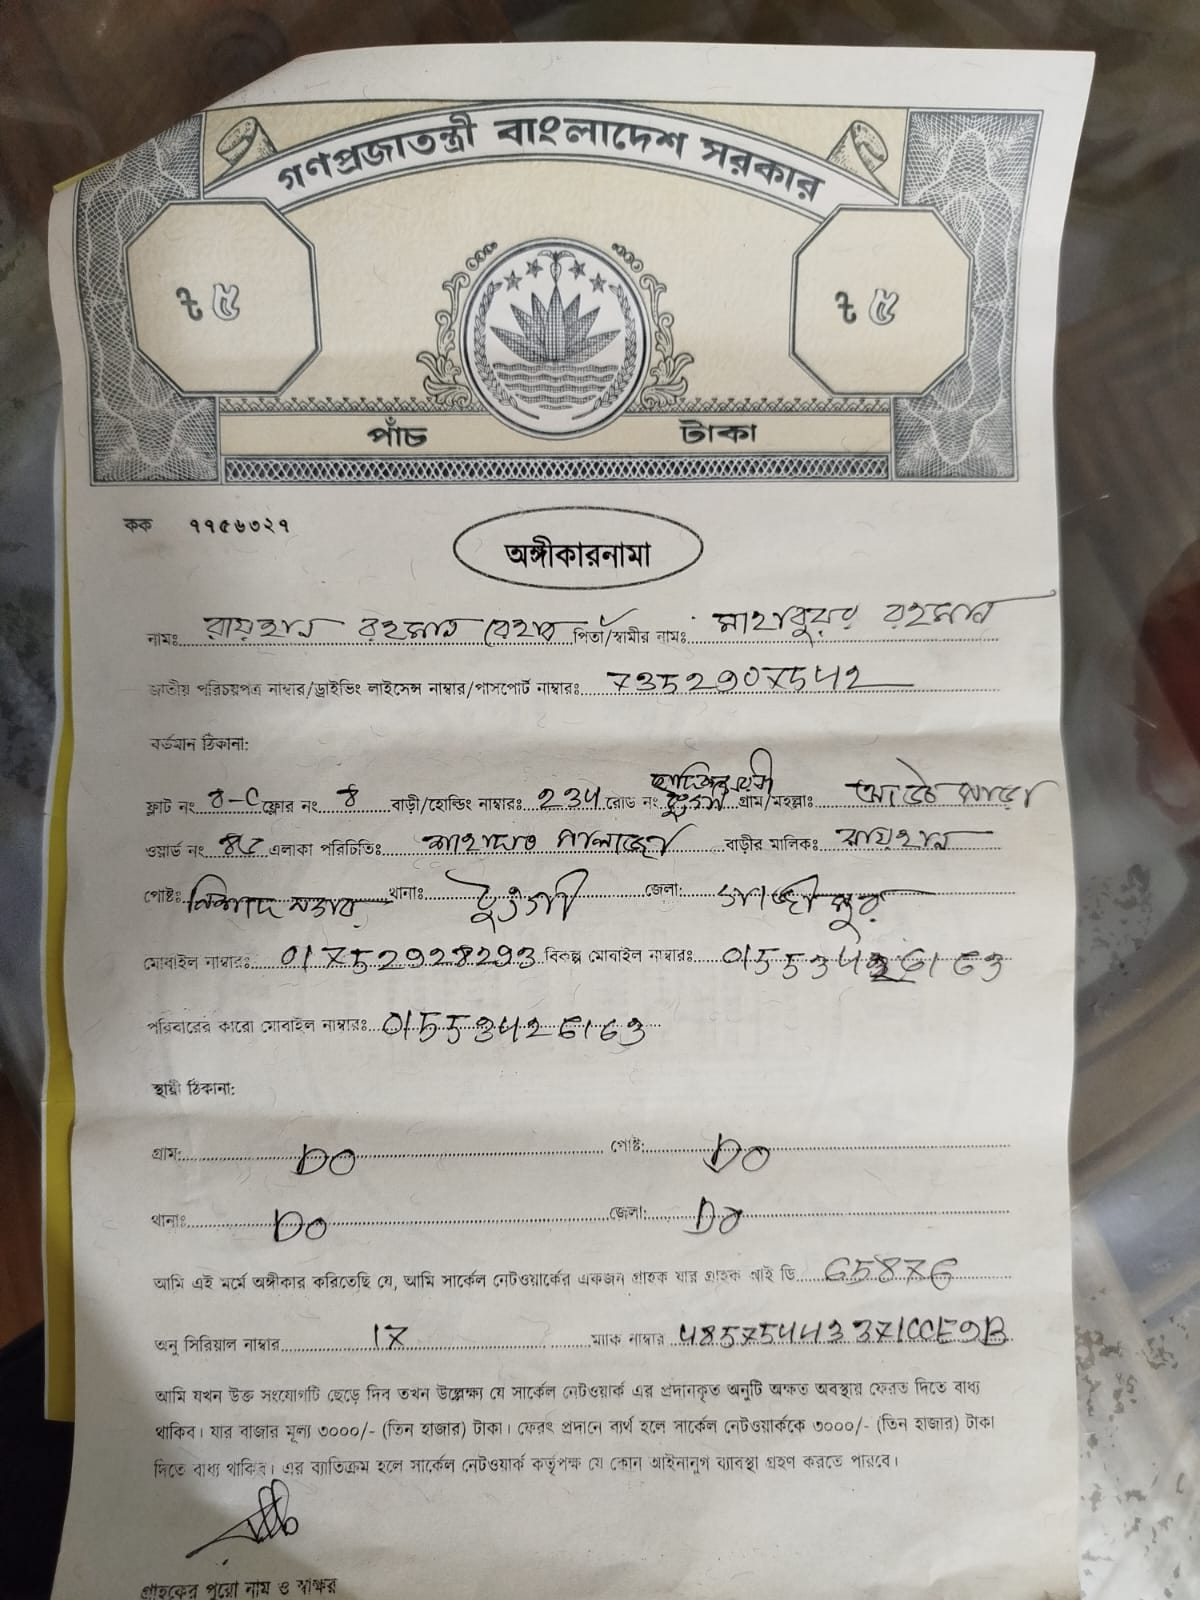 গণপ্রজাতন্ত্রী বাংলাদেশ সরকার
৳ ৫
৳ ৫
পাঁচ টাকা
কক ৭৭৫৬৩২৭
অঙ্গীকারনামা
নামঃ রায়হান রহমান পিতা/স্বামীর নামঃ রহমান
জাতীয় পরিচয়পত্র নাম্বার/ড্রাইভিং লাইসেন্স নাম্বার/পাসপোর্ট নাম্বারঃ 7352907542
বর্তমান ঠিকানা:
ফ্লাট নং 8-C ফ্লোর নং 8 বাড়ী/হোল্ডিং নাম্বারঃ 234 রোড নং গ্রাম/মহল্লাঃ
ওয়ার্ড নং এলাকা পরিচিতিঃ বাড়ীর মালিকঃ রায়হান
পোষ্টঃ নিশাদ নগর থানাঃ টুঙ্গী জেলা: গাজীপুর
মোবাইল নাম্বারঃ 01752928293 বিকল্প মোবাইল নাম্বারঃ 01553426163
পরিবারের কারো মোবাইল নাম্বারঃ 01553426163
স্থায়ী ঠিকানা:
গ্রাম: DO পোষ্ট: DO
থানাঃ DO জেলা: DO
আমি এই মর্মে অঙ্গীকার করিতেছি যে, আমি সার্কেল নেটওয়ার্কের একজন গ্রাহক যার গ্রাহক আই ডি 65876
অনু সিরিয়াল নাম্বার 17 ম্যাক নাম্বার 48575443371CCE9B
আমি যখন উক্ত সংযোগটি ছেড়ে দিব তখন উল্লেক্ষ্য যে সার্কেল নেটওয়ার্ক এর প্রদানকৃত অনুটি অক্ষত অবস্থায় ফেরত দিতে বাধ্য
থাকিব। যার বাজার মূল্য ৩০০০/- (তিন হাজার) টাকা। ফেরৎ প্রদানে ব্যর্থ হলে সার্কেল নেটওয়ার্ককে ৩০০০/- (তিন হাজার) টাকা
দিতে বাধ্য থাকিব। এর ব্যতিক্রম হলে সার্কেল নেটওয়ার্ক কর্তৃপক্ষ যে কোন আইনানুগ ব্যাবস্থা গ্রহণ করতে পারবে।
গ্রাহকের পুরো নাম ও স্বাক্ষর